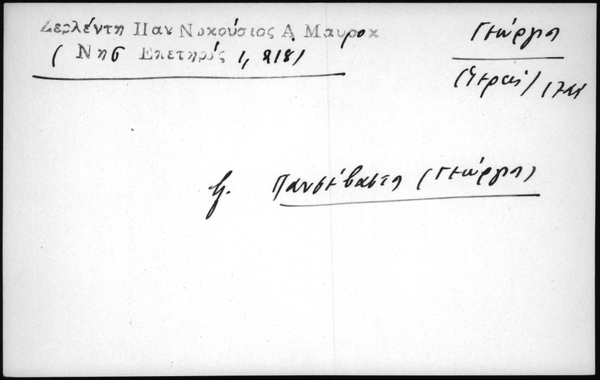 Δερλέντη Παν Νικούσιος Α Μαυροκ
( Νησ Επετηρίς 1, 218)
Γεώργιο
(Ιερεύς) 17
βλ. Πανσέβαστο (Γεώργιο)